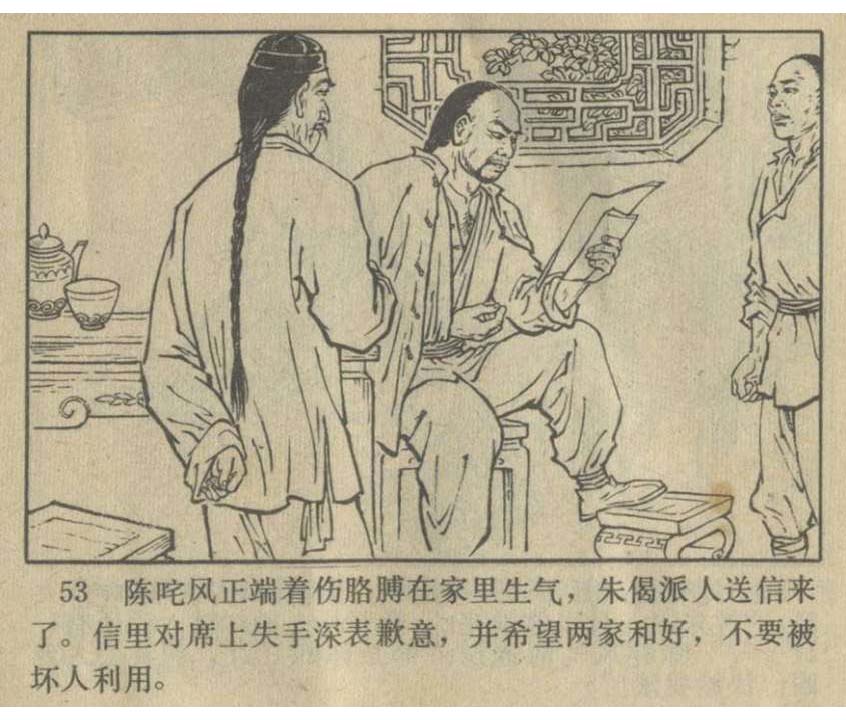 53 陈咤风正端着伤胳膊在家里生气，朱偈派人送信来
了。信里对席上失手深表歉意，并希望两家和好，不要被
坏人利用。